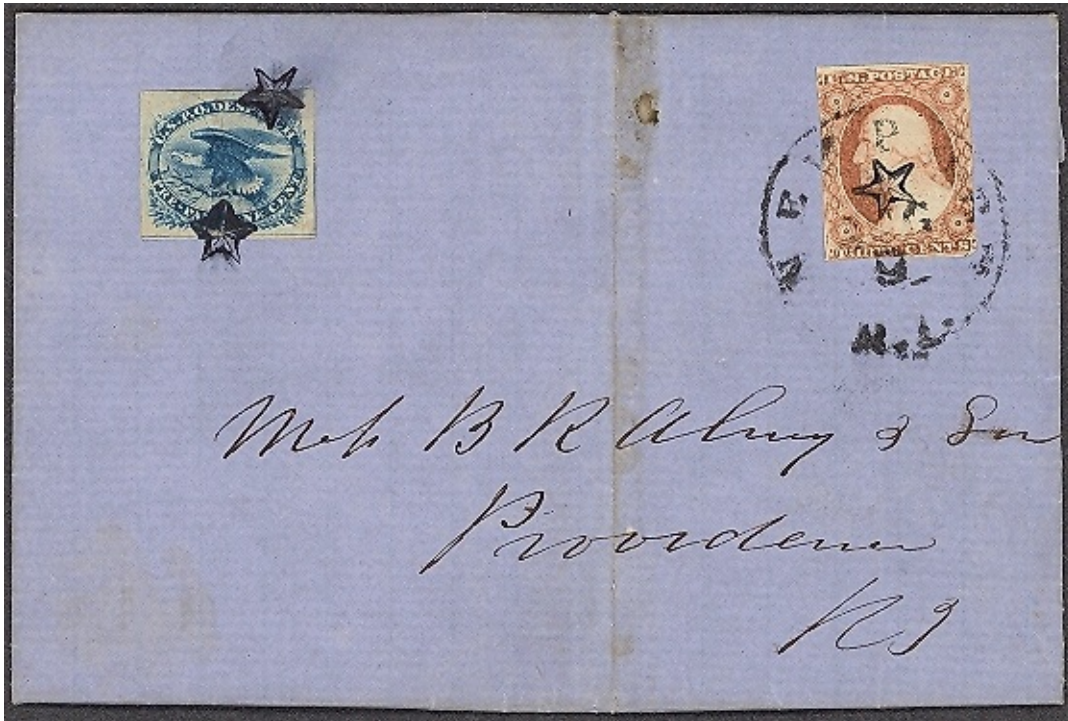 U.S.P.O. DESPATCH
PRE-PAID ONE CENT
U.S. POSTAGE
THREE CENTS
NEW
N.Y.
Mess B R Almy & Son
Providence
RI